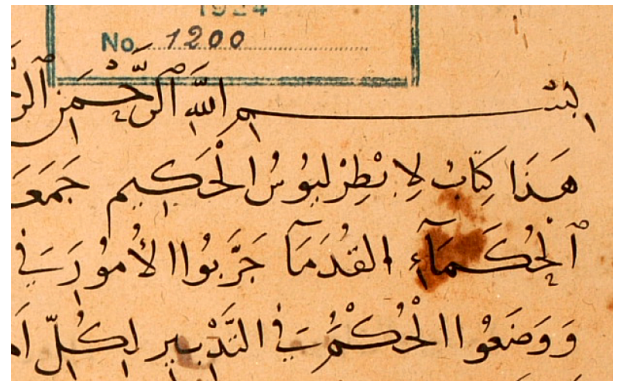 1924
No. 1200
بسم الله الرحمن
هَذَا كِتَابُ لِانْطِرْلِبُوُسُ الْحَكِيمِ جَمَعَ
ٱلْحُكَمَآءِ القُدَمَآ جَرَّبُوا الأُمُورَ فِي
وَوَضَعُوا الْحُكْمَ فِي التَّدْبِيرِ لِكُلّ